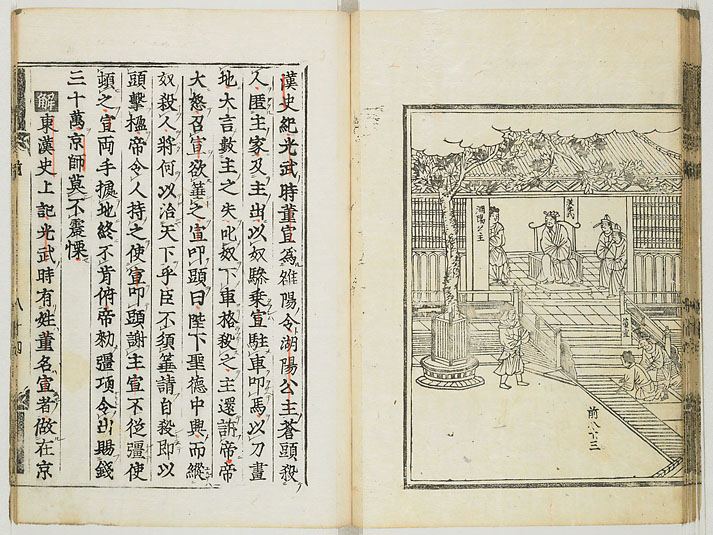 湖陽公主
前八十三
漢史紀光武時董宣為雒陽令湖陽公主蒼頭殺
人匿主家及主出以奴驂乘宣駐車叩馬以刀畫
地大言數主之失叱奴下車格殺之主還訴帝帝
大怒召宣欲箠之宣叩頭曰陛下聖德中興而縱
奴殺人將何以治天下乎臣不須箠請自殺即以
頭擊楹帝令人持之使宣叩頭謝主宣不從彊使
頓之宣両手據地終不肯俯帝勑彊項令出賜錢
三十萬京師莫不震慄
解東漢史上記光武時有姓董名宣者做在京